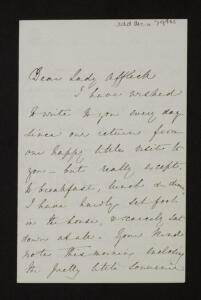 Dear Lady Affleck
I have wished
to write to you every day
since our return from
our happy little visit to
you – but really except
to breakfast, lunch & dine
I have hardly set foot
in the house, & scarcely sat
down at all. Your kind
note this morning enclosing
the pretty little souvenir